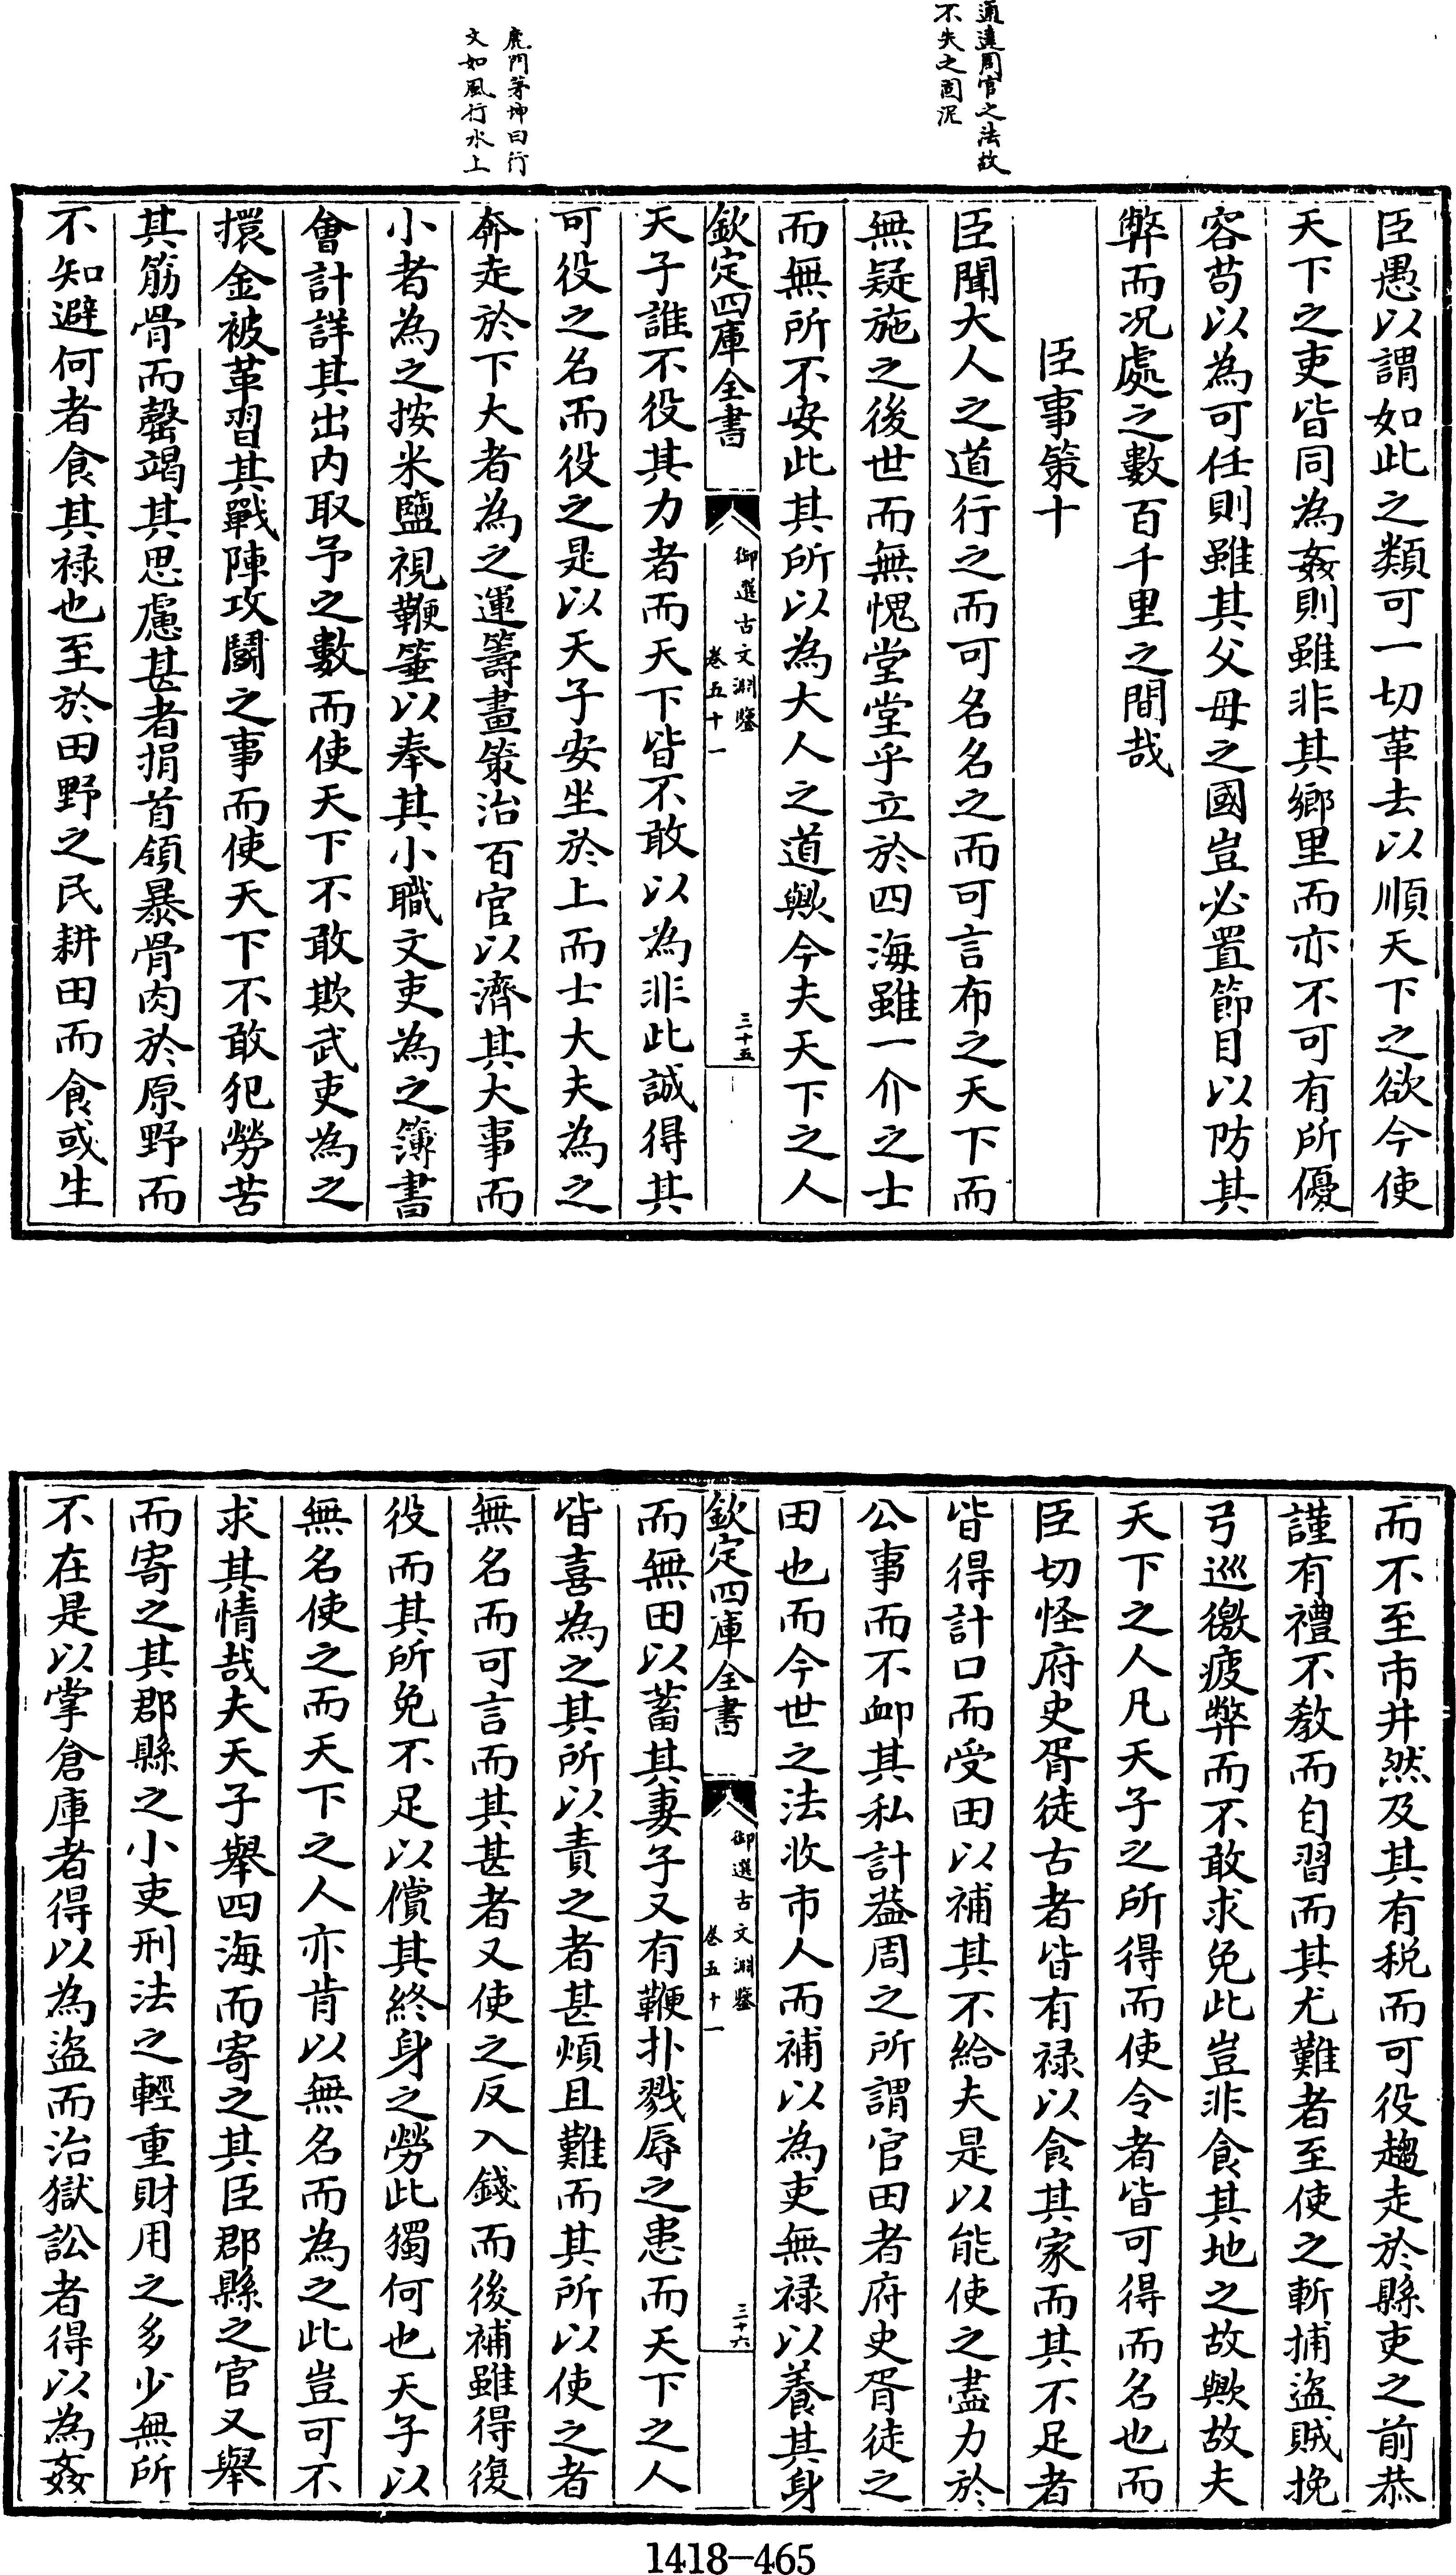 通達周官之法故
不失之固泥
鹿門茅坤曰行
文如風行水上
臣愚以謂如此之類可一切革去以順天下之欲今使
天下之吏皆同為姦則雖非其鄉里而亦不可有所優
容苟以為可任則雖其父母之國豈必置節目以防其
弊而况處之數百千里之間哉
臣事策十
臣聞大人之道行之而可名名之而可言布之天下而
無疑施之後世而無愧堂堂乎立於四海雖一介之士
而無所不安此其所以為大人之道歟今夫天下之人
欽定四庫全書
御選古文淵鑒
卷五十一
三十五
天子誰不役其力者而天下皆不敢以為非此誠得其
可役之名而役之是以天子安坐於上而士大夫為之
奔走於下大者為之運籌畫策治百官以濟其大事而
小者為之按米鹽視鞭箠以奉其小職文吏為之簿書
會計詳其出内取予之數而使天下不敢欺武吏為之
擐金被革習其戰陣攻鬭之事而使天下不敢犯勞苦
其筋骨而罄竭其思慮甚者捐首領暴骨肉於原野而
不知避何者食其禄也至於田野之民耕田而食或生
而不至市井然及其有税而可役趨走於縣吏之前恭
謹有禮不教而自習而其尤難者至使之斬捕盜賊挽
弓巡徼疲弊而不敢求免此豈非食其地之故歟故夫
天下之人凡天子之所得而使令者皆可得而名也而
臣切怪府史胥徒古者皆有禄以食其家而其不足者
皆得計口而受田以補其不給夫是以能使之盡力於
公事而不卹其私計葢周之所謂官田者府史胥徒之
田也而今世之法收市人而補以為吏無禄以養其身
欽定四庫全書
御選古文淵鑒
卷五十一
三十六
而無田以蓄其妻子又有鞭扑戮辱之患而天下之人
皆喜為之其所以責之者甚煩且難而其所以使之者
無名而可言而其甚者又使之反入錢而後補雖得復
役而其所免不足以償其終身之勞此獨何也天子以
無名使之而天下之人亦肯以無名而為之此豈可不
求其情哉夫天子舉四海而寄之其臣郡縣之官又舉
而寄之其郡縣之小吏刑法之輕重財用之多少無所
不在是以掌倉庫者得以為盜而治獄訟者得以為姦
1418-465